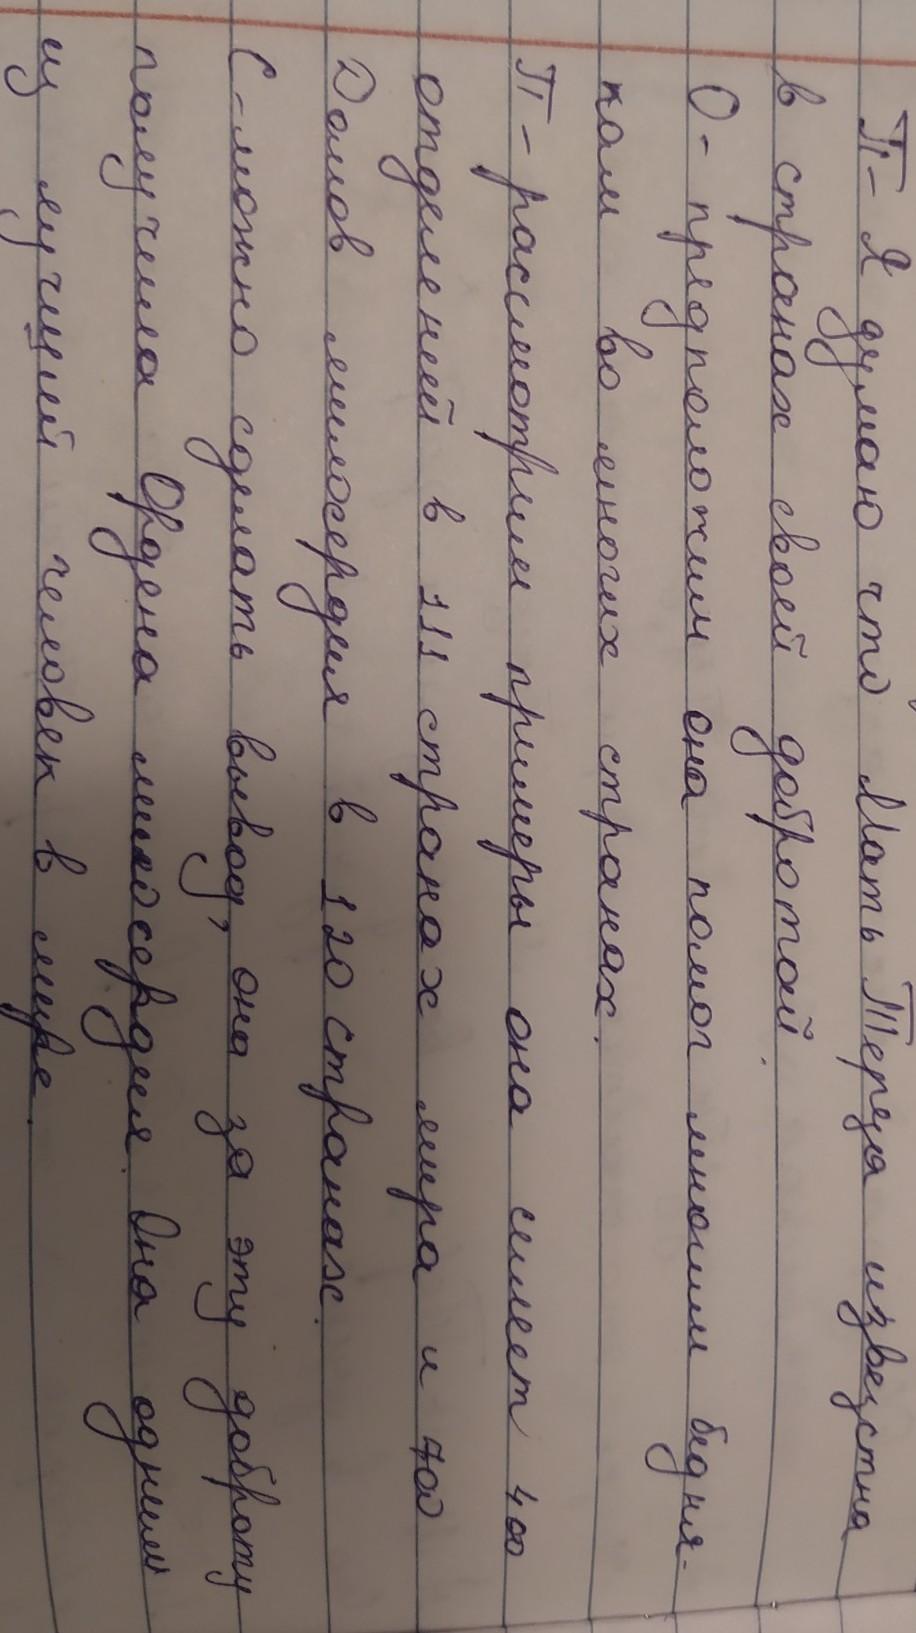 П- Я думаю что Мать Тереза извецстна
в странах своей добротой.
О- предположим она помог многим бедня-
кам во многих странах.
П- рассмотрим примеры она имеет 400
отделений в 111 странах мира и 700
Домов милосердия в 120 странах.
С- можно сделать вывод, она за эту доброту
получила Ордена милосердия. Она одним
из лучший человек в мире.